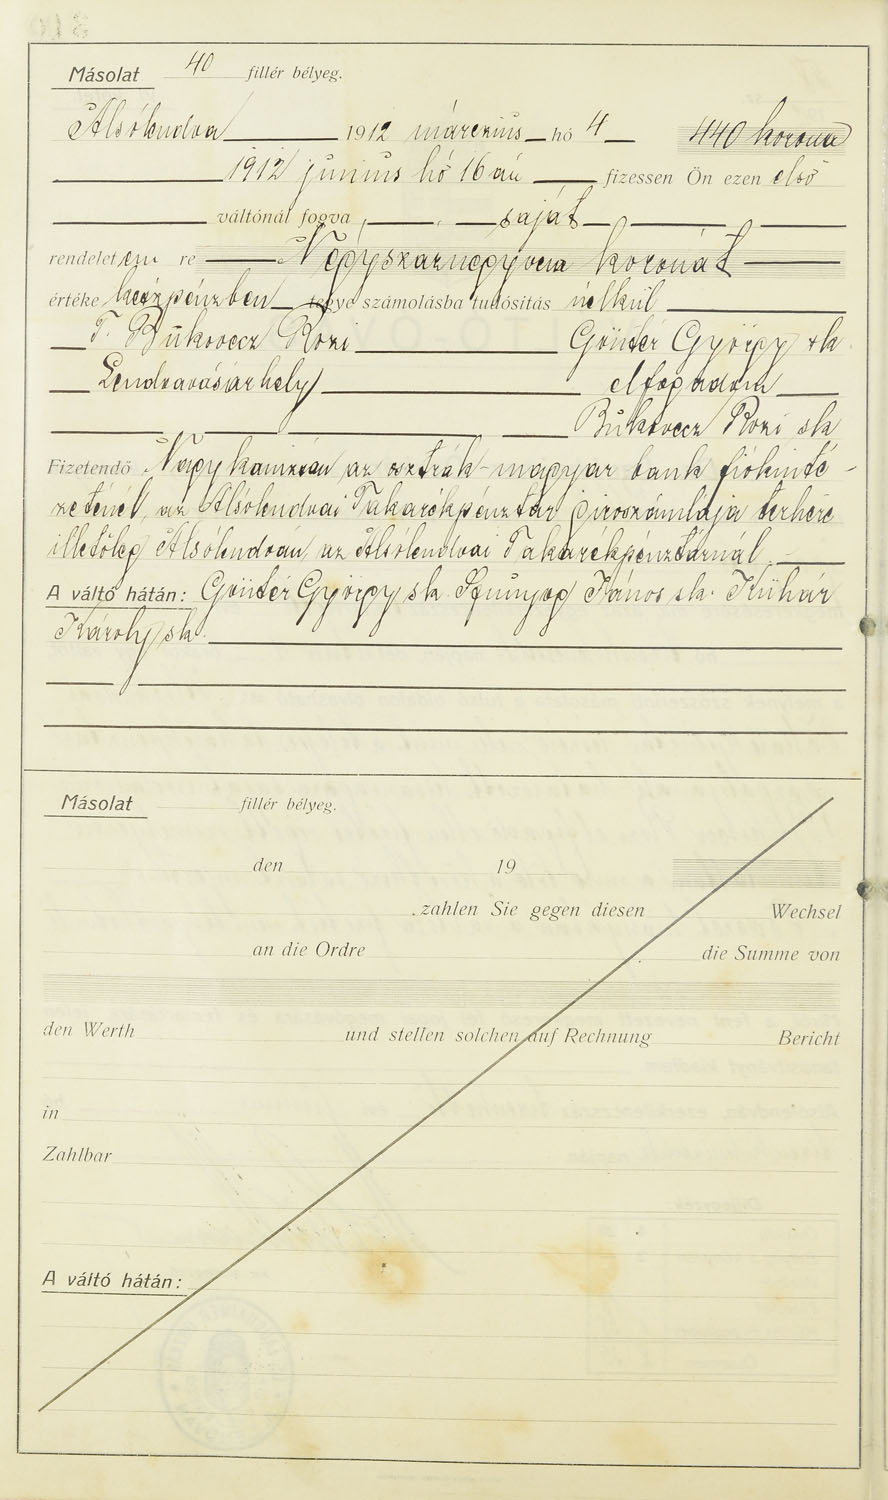 Másolat 40 fillér bélyeg.
Alsólendva 1912 márczius hó 4 440 korona
1912 junius hó 16 án fizessen Ön ezen első
váltónál fogva saját
rendeletem re Négyszáznegyven koronát
értéke készpénzben tegye számolásba tudósítás nélkül
T. Bukovecz Rozi Göntér György sk
Lendvavásárhely elfogadom
Bukovecz Rozi sk
Fizetendő Nagykanizsán az osztrák-magyar bank fiókinté-
zeténél, az Alsólendvai Takarékpénztár girószámlája terhére
illetőleg Alsólendván, az Alsólendvai Takarékpénztárnál
A váltó hátán: Göntér György sk. János sk. Kühár
Károly sk.
Másolat fillér bélyeg.
den 19
zahlen Sie gegen diesen Wechsel
an die Ordre die Summe von
den Werth und stellen solchen auf Rechnung Bericht
in
Zahlbar
A váltó hátán: